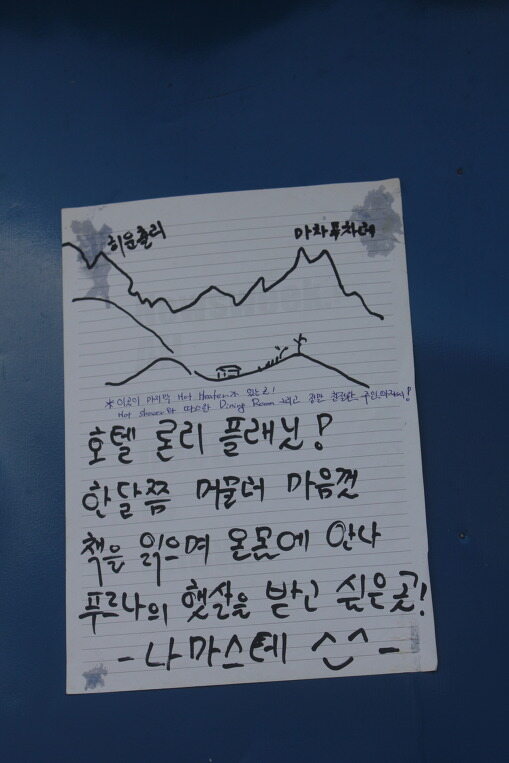 히운출리 마차푸차레
* 이곳이 마지막 Hot Heater가 있는 곳!
Hot shower와 따스한 Dining Room 그리고 정말 친절한 주인아저씨!
호텔 론리 플래닛!
한달쯤 머물러 마음껏
책을 읽으며 온몸에 안나
푸르나의 햇살을 받고 싶은 곳!
- 나마스테 ^_^ -